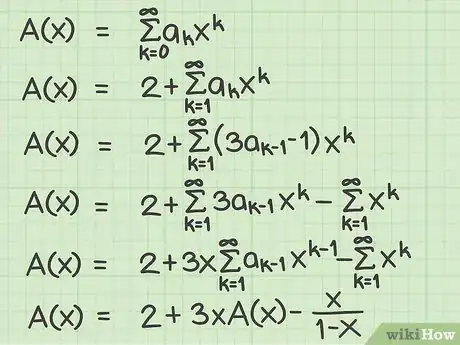 A(x) = ∞∑k=0 aₖxᵏ
A(x) = 2 + ∞∑k=1 aₖxᵏ
A(x) = 2 + ∞∑k=1 (3aₖ₋₁-1)xᵏ
A(x) = 2 + ∞∑k=1 3aₖ₋₁xᵏ - ∞∑k=1 xᵏ
A(x) = 2 + 3x ∞∑k=1 aₖ₋₁xᵏ⁻¹ - ∞∑k=1 xᵏ
A(x) = 2 + 3xA(x) - x/(1-x)
wikiHow